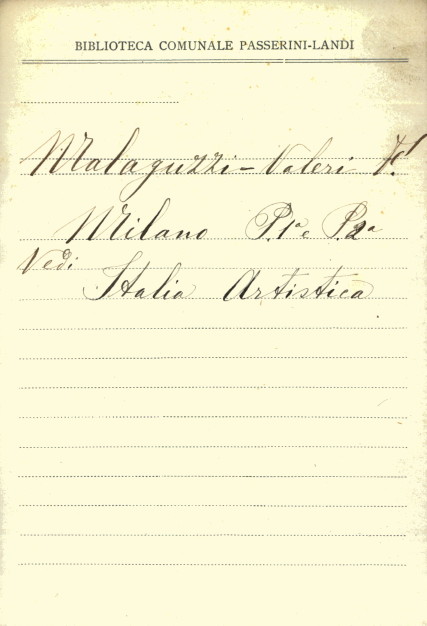 BIBLIOTECA COMUNALE PASSERINI-LANDI
Malaguzzi-Valeri F.
Milano P. 1ª e P. 2ª
Vedi
Italia Artistica